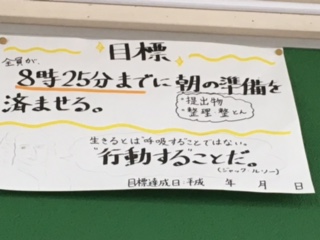 目標
全員が、
8時25分までに 朝の準備を
・提出物
・整理整とん
済ませる。
生きるとは"呼吸する"ことではない。
"行動する"ことだ。
(ジャック・ルソー)
目標達成日 平成 年 月 日